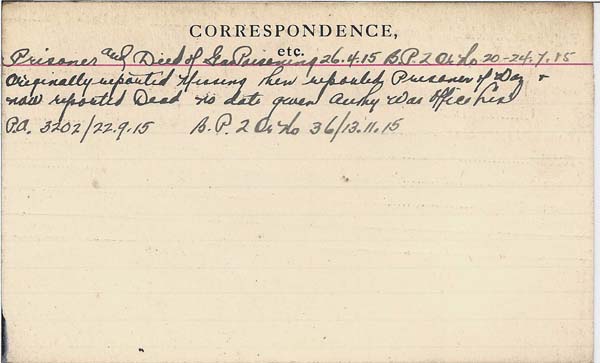 CORRESPONDENCE,
etc.
Prisoner and Died of Gas Poisoning 26.4.15 B.P. 2 Or No 20-24.7.15
Originally reported Missing then reported Prisoner of War &
now reported Dead no date given Authy War Office List
P.A. 3202/22.9.15 B.P. 2 Or No 36/13.11.15